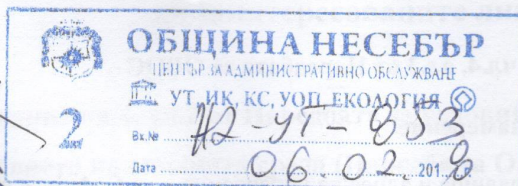 ОБЩИНА НЕСЕБЪР
ЦЕНТЪР ЗА АДМИНИСТРАТИВНО ОБСЛУЖВАНЕ
УТ, ИК, КС, УОП, ЕКОЛОГИЯ
2
Вх.№ Н2-УТ-853
Дата 06.02.2018 г.